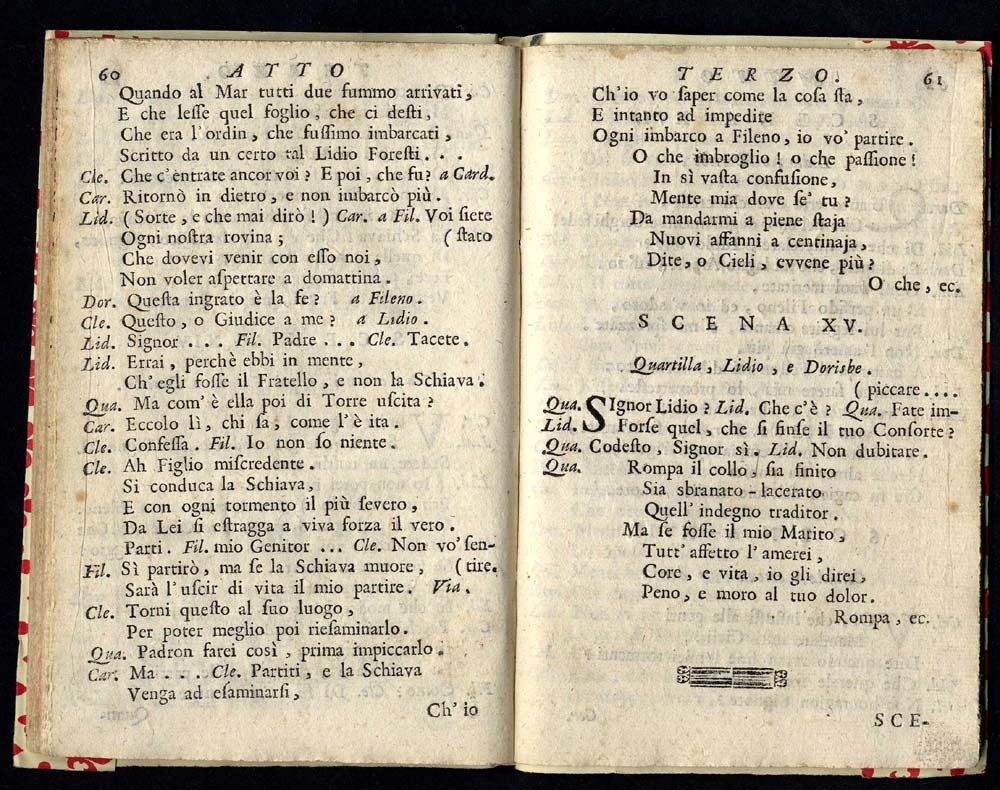 60 ATTO
Quando al Mar tutti due fummo arrivati,
E che leſſe quel foglio, che ci deſti,
Che era l'ordin, che fuſſimo imbarcati,
Scritto da un certo tal Lidio Foreſti...
Cle. Che c'entrate ancor voi? E poi, che fu? a Card.
Car. Ritornò in dietro, e non imbarcò più.
Lid. (Sorte, e che mai dirò!) Car. a Fil. Voi ſiete
Ogni noſtra rovina; (ſtato
Che dovevi venir con eſſo noi,
Non voler aſpettare a domattina.
Dor. Queſta ingrato è la fe? a Fileno.
Cle. Queſto, o Giudice a me? a Lidio.
Lid. Signor... Fil. Padre... Cle. Tacete.
Lid. Errai, perchè ebbi in mente,
Ch'egli foſſe il Fratello, e non la Schiava.
Qua. Ma com' è ella poi di Torre uſcita?
Car. Eccolo lì, chi ſa, come l'è ita.
Cle. Confeſſa. Fil. Io non ſo niente.
Cle. Ah Figlio miſcredente.
Si conduca la Schiava,
E con ogni tormento il più ſevero,
Da Lei ſi eſtragga a viva forza il vero.
Parti. Fil. mio Genitor... Cle. Non vo' ſen-
Fil. Sì partirò, ma ſe la Schiava muore, (tire.
Sarà l'uſcir di vita il mio partire. Via.
Cle. Torni queſto al ſuo luogo,
Per poter meglio poi rieſaminarlo.
Qua. Padron farei così, prima impiccarlo.
Car. Ma... Cle. Partiti, e la Schiava
Venga ad eſaminarſi,
Ch' io
TERZO. 61
Ch'io vo ſaper come la coſa ſta,
E intanto ad impedire
Ogni imbarco a Fileno, io vo' partire.
O che imbroglio! o che paſſione!
In sì vaſta confuſione,
Mente mia dove ſe' tu?
Da mandarmi a piene ſtaja
Nuovi affanni a centinaja,
Dite, o Cieli, evvene più?
O che, ec.
SCENA XV.
Quartilla, Lidio, e Dorisbe.
(piccare....
Qua. SIgnor Lidio? Lid. Che c'è? Qua. Fate im-
Lid. Forſe quel, che ſi finſe il tuo Conſorte?
Qua. Codeſto, Signor sì. Lid. Non dubitare.
Qua. Rompa il collo, ſia finito
Sia sbranato-lacerato
Quell' indegno traditor.
Ma ſe foſſe il mio Marito,
Tutt' affetto l'amerei,
Core, e vita, io gli direi,
Peno, e moro al tuo dolor.
Rompa, ec.
SCE-